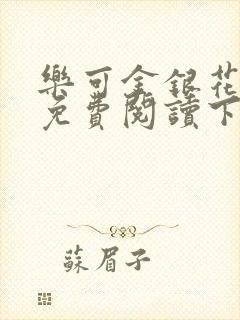 樂可金銀花
免費閱讀下
蘇眉子